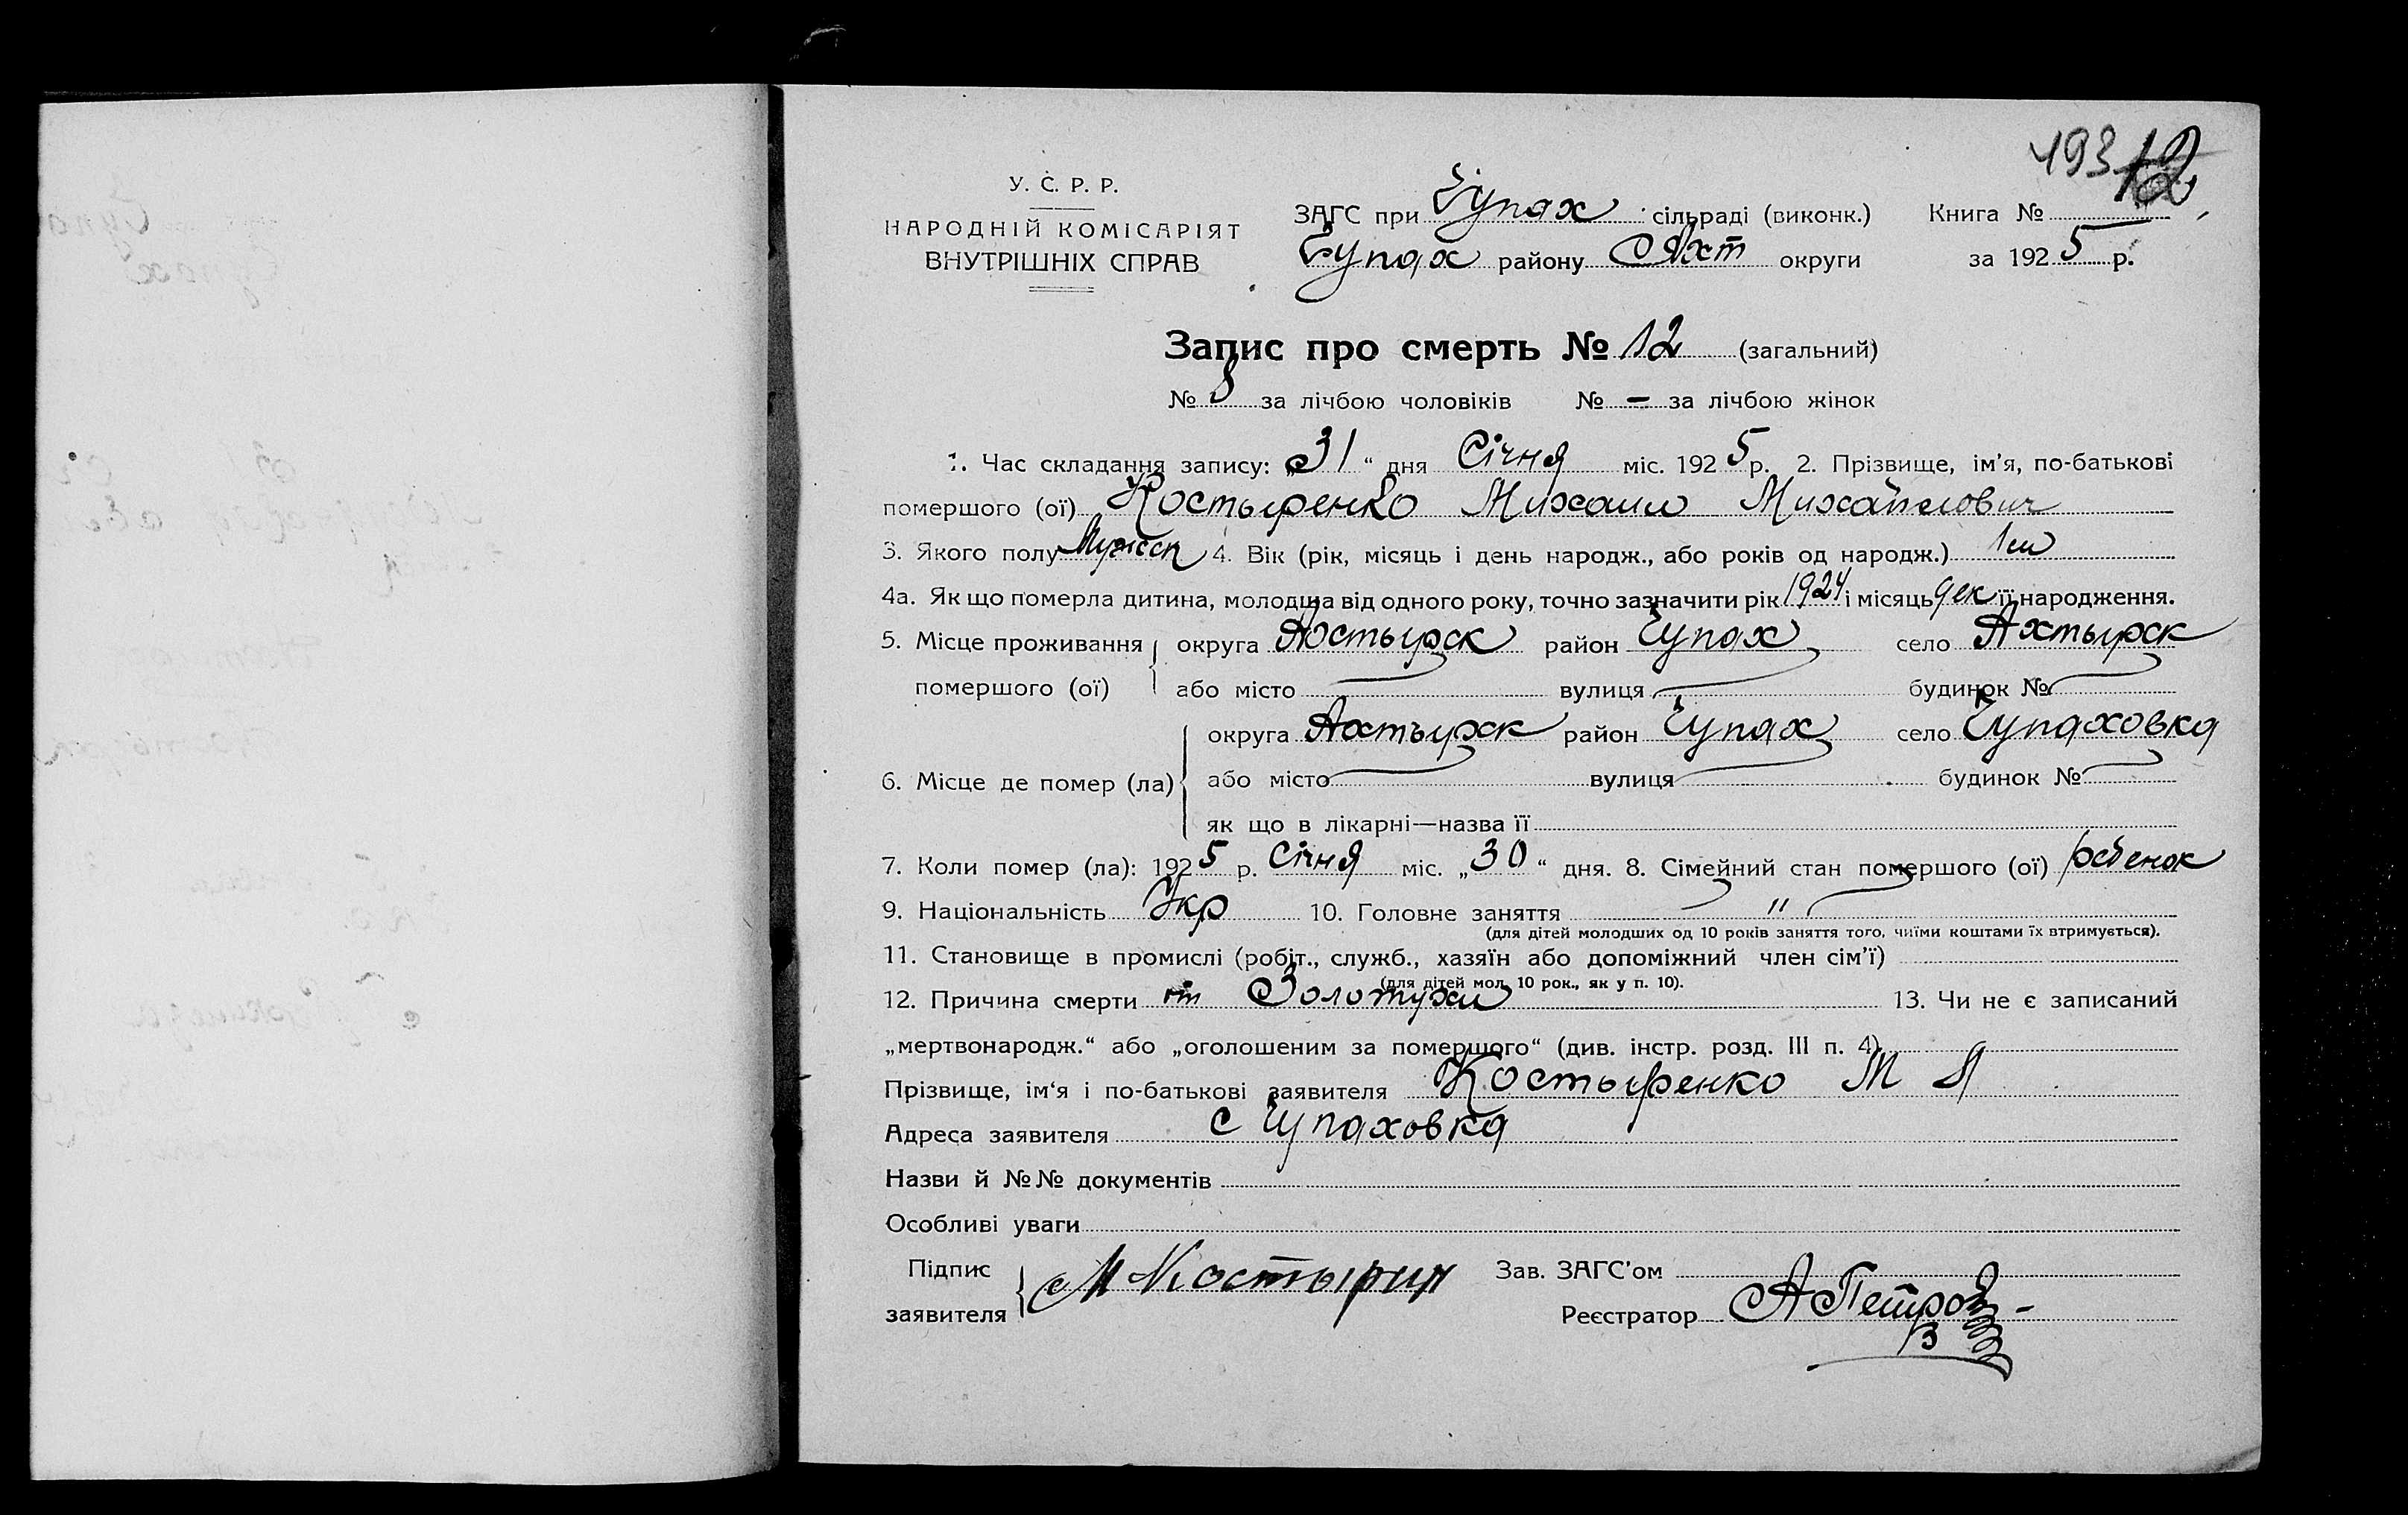 193 12
У. С. Р. Р.
НАРОДНІЙ КОМІСАРІЯТ
ВНУТРІШНІХ СПРАВ
ЗАГС при Чупах сільраді (виконк.) Книга №
Чупах району Ахт округи за 1925 р.
Запис про смерть № 12 (загальний)
№ 8 за лічбою чоловіків № — за лічбою жінок
1. Час складання запису: „31“ дня Січня міс. 1925 р. 2. Прізвище, ім'я, по-батькові
помершого (ої) Костыренко Михаил Михайлович
3. Якого полу Мужск 4. Вік (рік, місяць і день народж., або років од народж.) 1 м
4а. Як що померла дитина, молодша від одного року, точно зазначити рік 1924 і місяць дек її народження.
5. Місце проживання помершого (ої) округа Ахтырск район Чупах село Ахтырск
або місто вулиця будинок №
6. Місце де помер (ла) округа Ахтырск район Чупах село Чупаховка
або місто вулиця будинок №
як що в лікарні—назва її
7. Коли помер (ла): 1925 р. Січня міс. „30“ дня. 8. Сімейний стан помершого (ої) ребенок
9. Національність Укр 10. Головне заняття "
(для дітей молодших од 10 років заняття того, чиїми коштами їх втримується).
11. Становище в промислі (робіт., служб., хазяїн або допоміжний член сім'ї)
(для дітей мол. 10 рок., як у п. 10).
12. Причина смерти от Золотухи 13. Чи не є записаний
„мертвонародж.“ або „оголошеним за помершого“ (див. інстр. розд. III п. 4)
Прізвище, ім'я і по-батькові заявителя Костыренко М Я
Адреса заявителя с Чупаховка
Назви й №№ документів
Особливі уваги
Підпис заявителя М Костырин Зав. ЗАГС'ом
Реєстратор А Петров